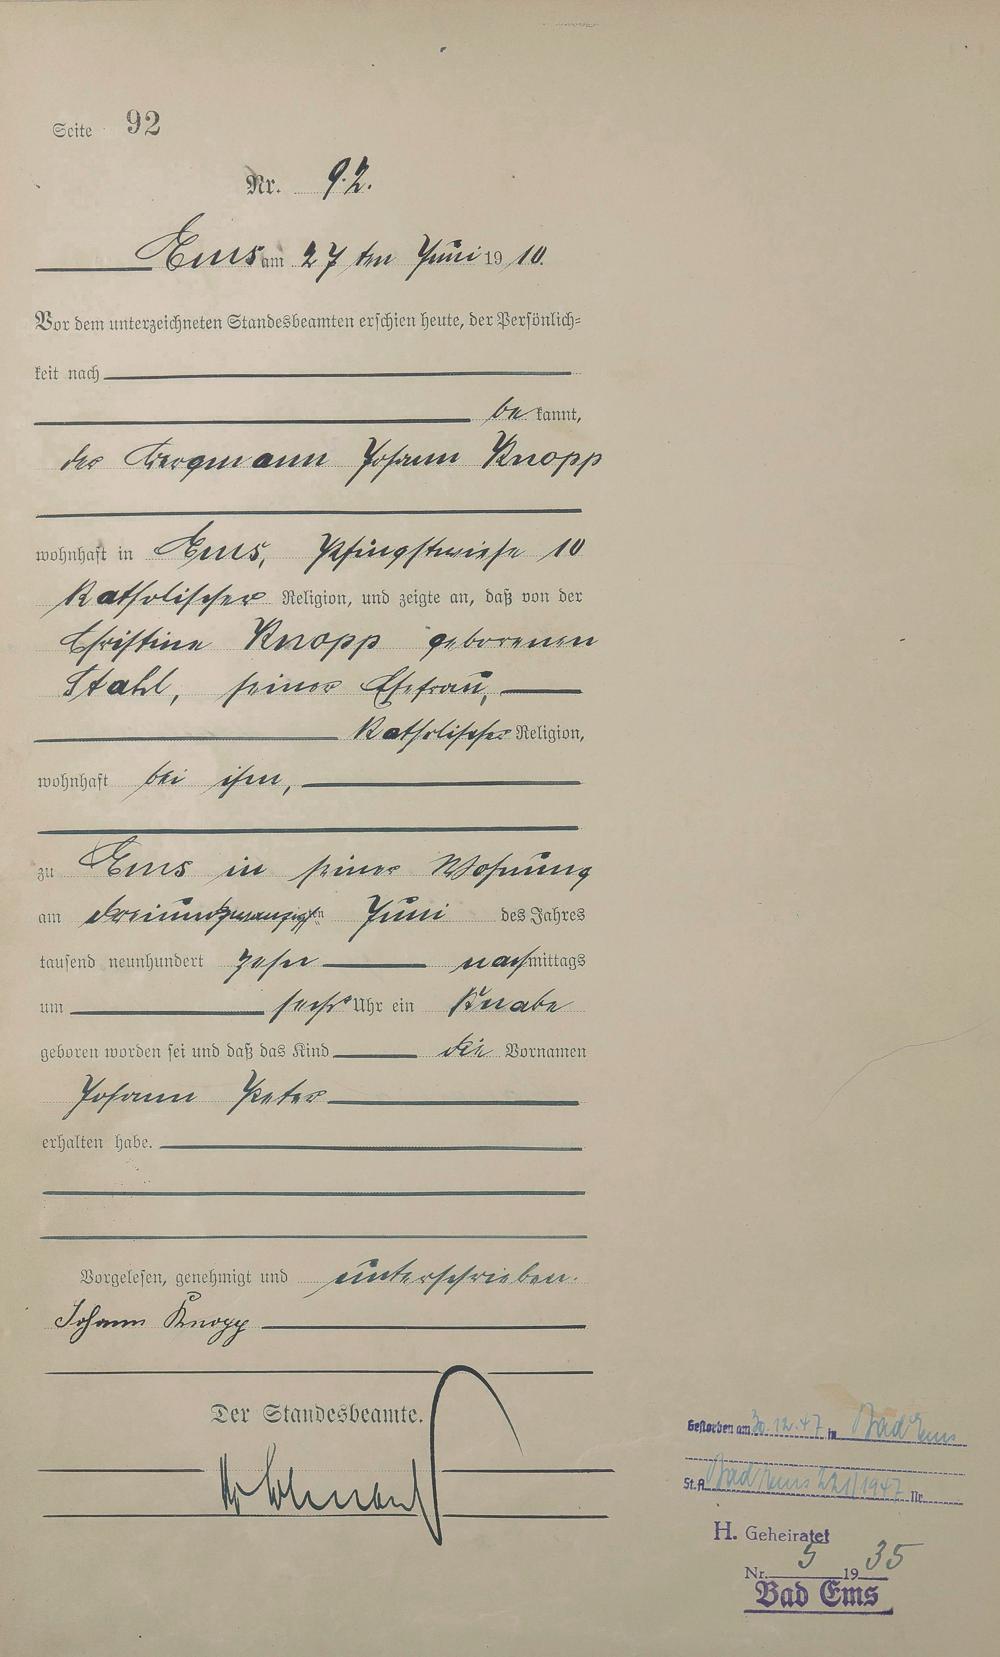 Seite 92
Nr. 92.
Ems am 27ten Juni 1910.
Vor dem unterzeichneten Standesbeamten erschien heute, der Persönlich=
keit nach
bekannt,
der Bergmann Johann Knopp
wohnhaft in Ems, Pfingstwiese 10
katholischer Religion, und zeigte an, daß von der
Christine Knopp geborenen
Stahl, seiner Ehefrau,
katholischer Religion,
wohnhaft bei ihm,
zu Ems in seiner Wohnung
am dreiundzwanzigsten Juni des Jahres
tausend neunhundert zehn nachmittags
um sechs Uhr ein Knabe
geboren worden sei und daß das Kind die Vornamen
Johann Peter
erhalten habe.
Vorgelesen, genehmigt und unterschrieben.
Johann Knopp
Der Standesbeamte.
Gestorben am 30.12.47 in Bad Ems
St.A. Bad Ems 221/1947 Nr.
H. Geheiratet
Nr. 5 1935
Bad Ems